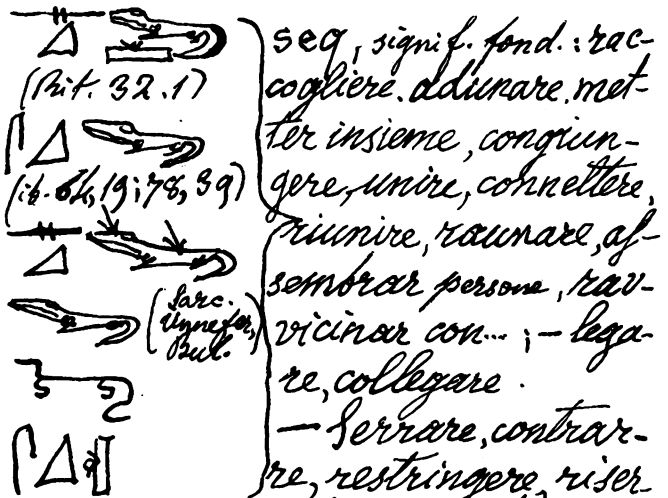 (Rit. 32.1)
(ib. 64,19; 78, 39)
(Sarc.
Unnefer,
Bul.
seq, signif. fond.: rac-
cogliere. adunare. met-
ter insieme, congiun-
gere, unire, connettere,
riunire, raunare, as-
sembrar persone, rav-
vicinar con...; — lega-
re, collegare.
— Serrare, contrar-
re, restringere, riser-